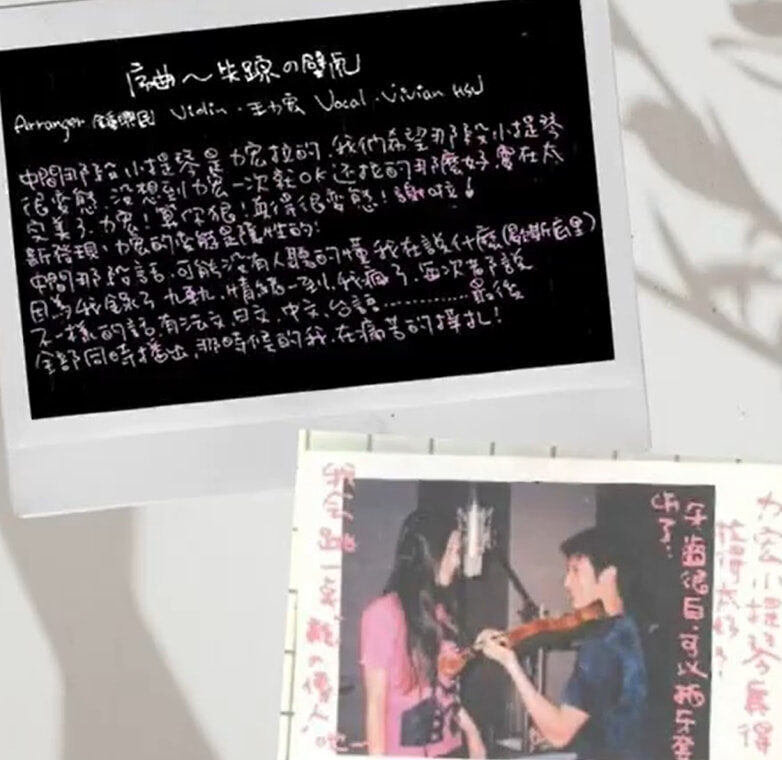 序曲～失蹤の壁虎
Arranger 鍾興民 Violin・王力宏 Vocal・Vivian HSU
中間那段小提琴是力宏拉的，我們希望那段小提琴
很變態，沒想到力宏一次就OK還拉的那麼好，實在太
完美了，力宏！算你狠！真得很變態！謝啦！
新發現，力宏的變態是隱性的！
中間那段話，可能沒有人聽的懂我在說什麼（歇斯底里）
因為我錄了九軌，情緒一到，我瘋了，每次都說
不一樣的話，有法文，日文，中文，台語…………最後
全部同時播出，那時候的我，在痛苦的掙扎！
牙齒很白，可以拍牙膏
力宏小提琴真得
拉得太好